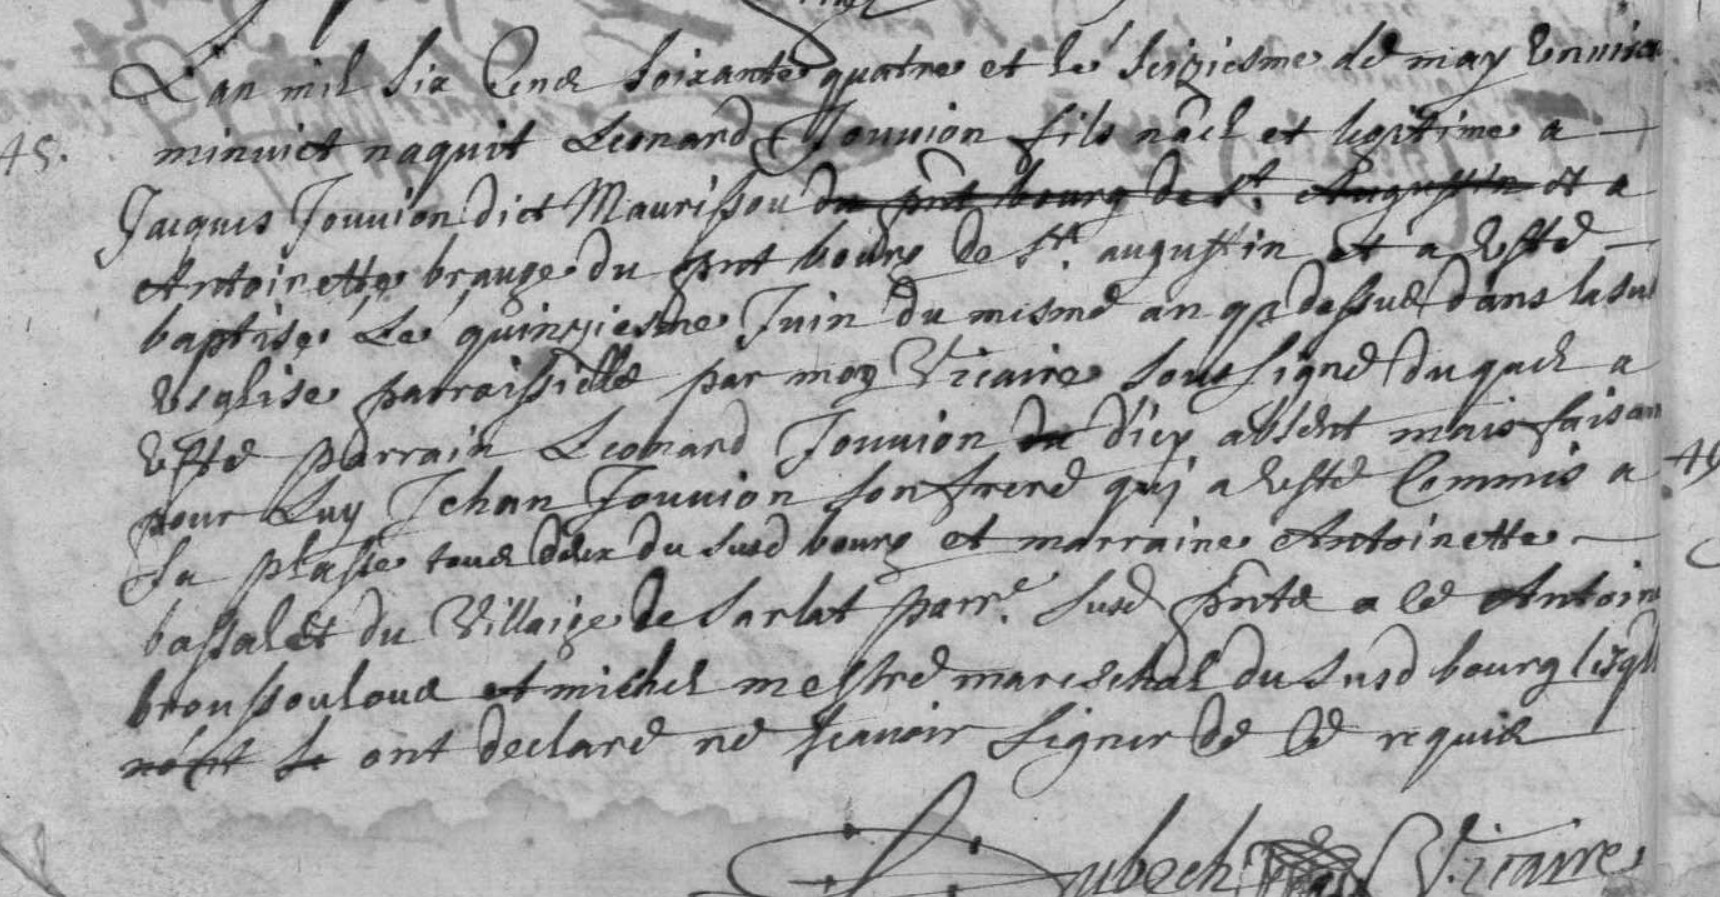 L'an mil six Cens soixante quatre et le seiziesme de may Environ
45. minuict naquit Leonard Jouvion fils nãel et legitime a
Jacques Jouvion dict Maurissou du pñt bourg de St. Augustin et a
Antoinette brauge du pnt bourg de St. augustin et a esté
baptisé Le quinziesme Juin du mesme an q̃ dessus dans la sus
Esglise parroissielle par moy Vicaire soussigné duquel a
esté parrain Leonard Jouvion du d'icy absent mais faisan
pour Luy Jehan Jouvion son frere qui a esté Commis a
sa plasse tous deux du susd bourg et marraine Antoinette
bassalet du Villaige de sarlat parre. susd pñts a ce Antoin
broussouloux et michel mestre mareschal du susd bourg lesqls
ont declaré ne scavoir signer de ce requis
Dubech Vicaire